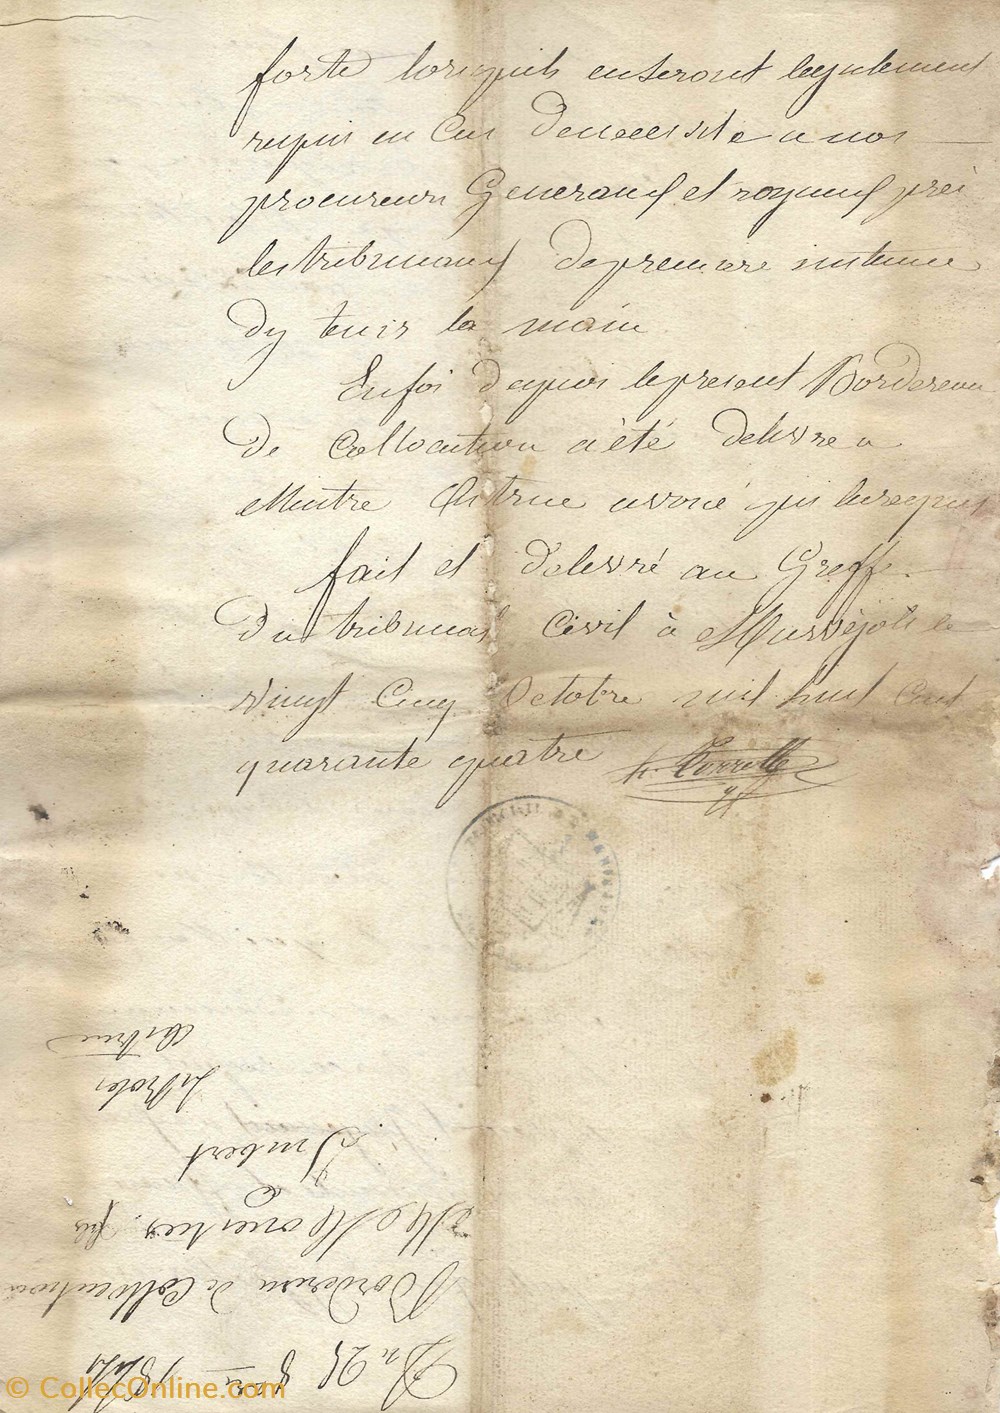 forte lorsquils enseront legalement
requis en Cas Denecessité a nos
procureurs Generaux et royaux près
lestribunaux depremiere instance
Dy tenir la main
Enfoi dequoi lepresent Bordereau
De Collocation aété delivré a
Maitre Astruc avoué qui larequis
fait et Délivré au Greffe
Du tribunal Civil à Marvejols le
vingt Cinq Octobre mil huit Cent
quarante quatre
Du 25 8bre 1844
Bordereau de Collocation
Me Monestier, fils
C
Imbert
Astruc
© CollecOnline.com